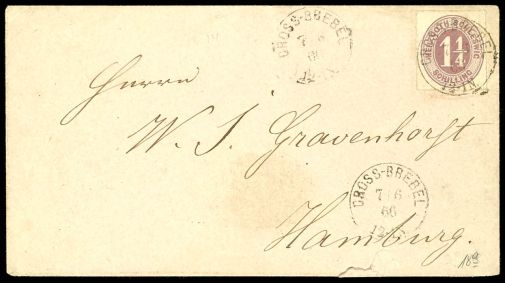 GROSS-BREBEL
7 6
66
HERZOGTH. SCHLESWIG
1 1/4
SCHILLING
Herrn
W. S. Gravenhorst
GROSS-BREBEL
7 6
66
Hamburg.